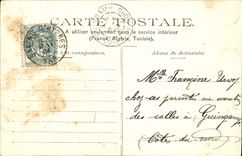 CARTE POSTALE
A utiliser seulement dans le service intérieur
(France, Algérie, Tunisie).
la correspondance.
Adresse du Destinataire.
Mlle Françine
chez ses parents au
des salles à Guingamp
Côtes du nord